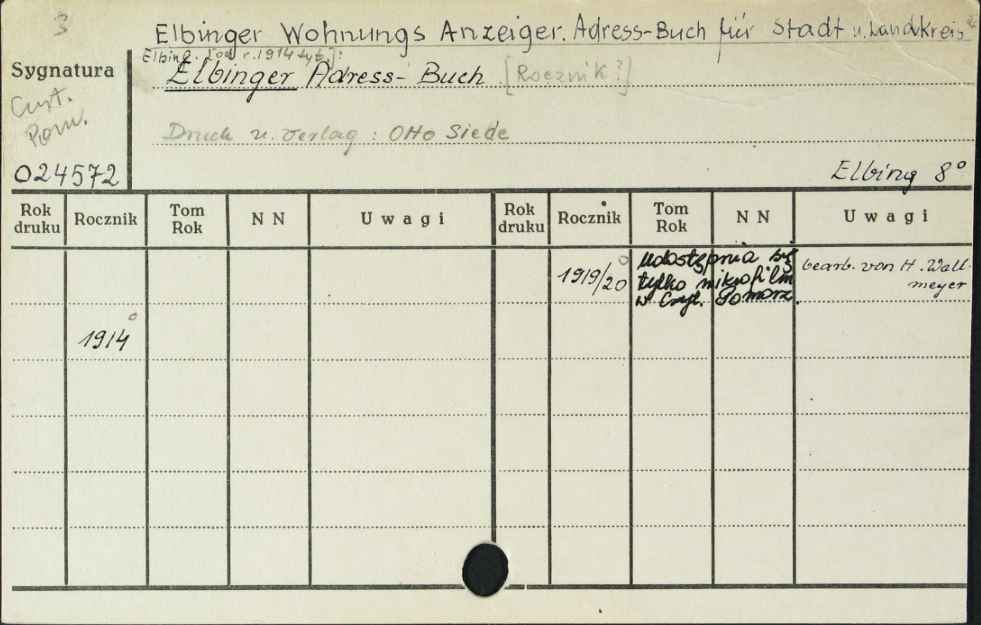 3
Elbinger Wohnungs Anzeiger. Adress-Buch für Stadt u. Landkreis
Elbing. [od r. 1914 tyt.]:
Sygnatura
Elbinger Adress-Buch [Rocznik?]
Czyt.
Pom.
Druck u. Verlag: Otto Siede
024572
Elbing 8°
Rok druku Rocznik Tom Rok N N Uwagi Rok druku Rocznik Tom Rok N N Uwagi
1919/20 udostępnia się bearb. von H. Wall-
tylko mikrofilm meyer
w Czyt. Pomorz.
1914